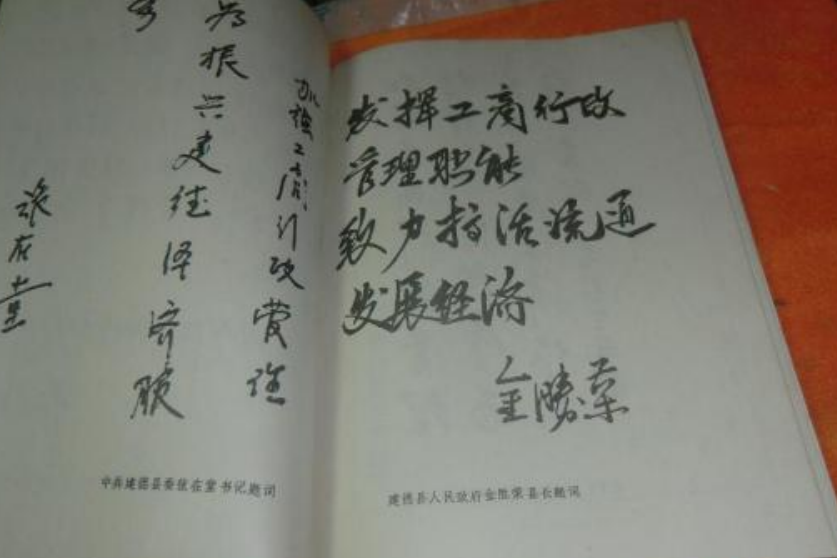 加强工商行政管理
为振兴建德经济服
务
张在堂
中共建德县委张在堂书记题词
发挥工商行政
管理职能
致力搞活流通
发展经济
金勝荣
建德县人民政府金胜荣县长题词